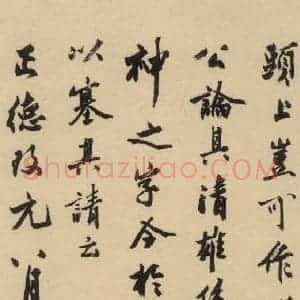 頭上豈可作
公論其清雄
神之字今於
以塞其請云
正德改元八月
Shufaziliao.com